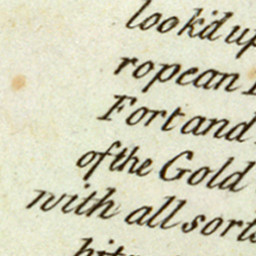 look'd up
ropean
Fort and
of the Gold
with all sorts